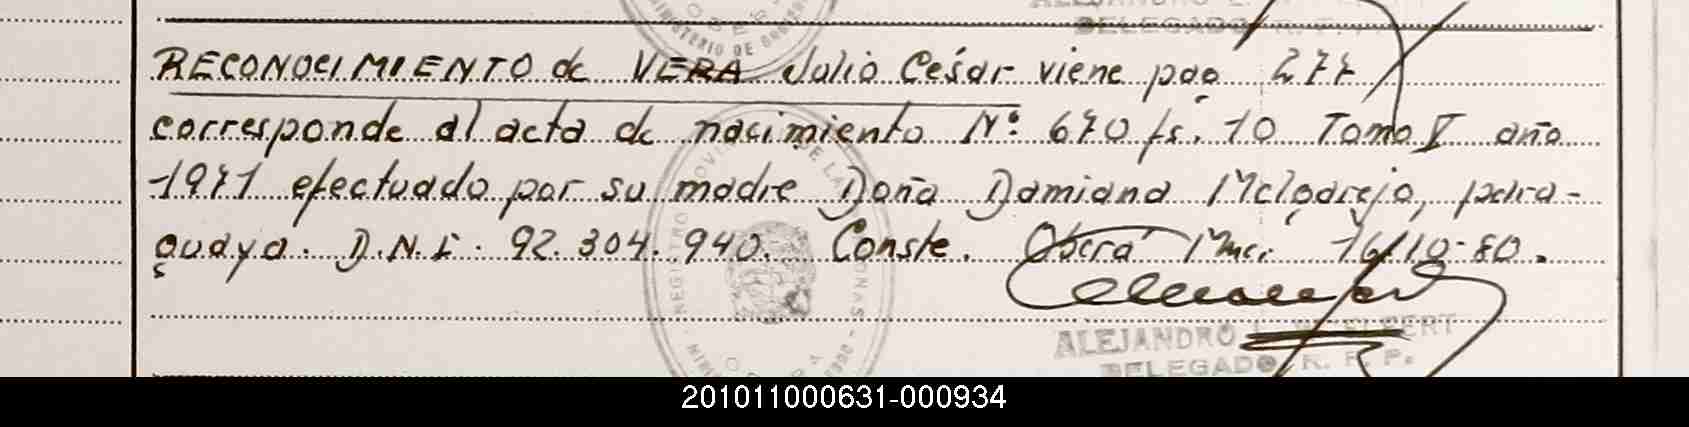 MINISTERIO DE GOB
DELEGADO R. P. P.
RECONOCIMIENTO de VERA Julio César viene pag 277
corresponde al acta de nacimiento Nº 670 fs. 10 Tomo V año
1971 efectuado por su madre Doña Damiana Melgarejo, para-
guaya. D.N.I. 92.304.940. Conste. Oberá Mnes. 16/10-80.
ALEJANDRO
DELEGADO R. P. P.
201011000631-000934